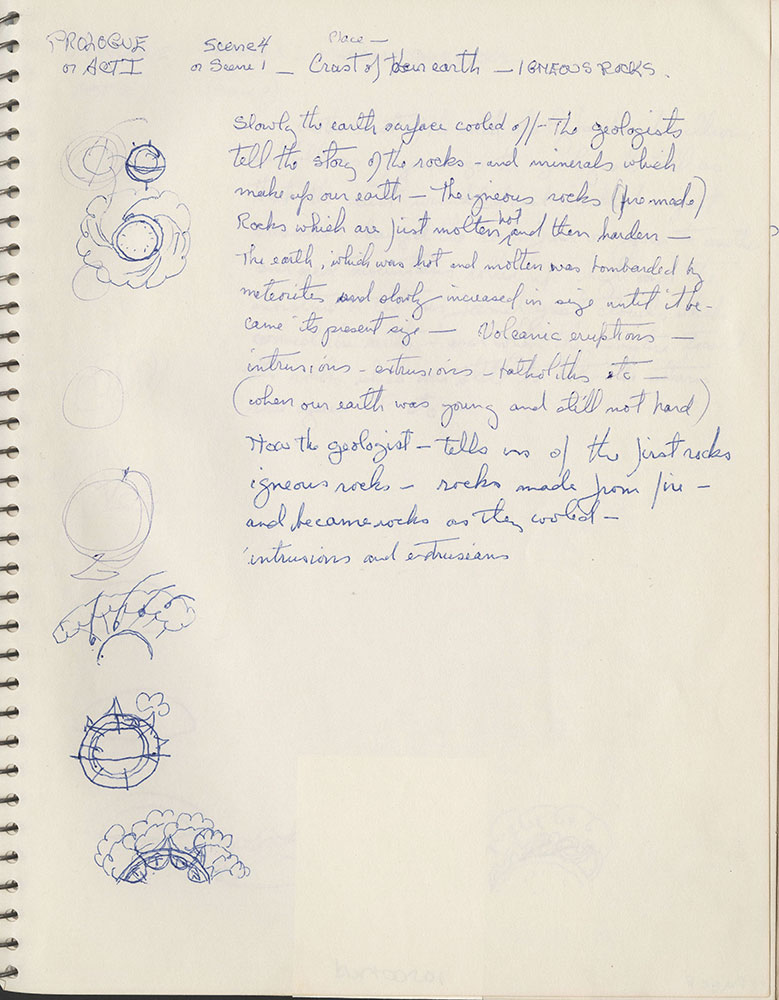 PROLOGUE Scene 4 Place —
or ACT I or Scene 1 — Crust of our earth — IGNEOUS ROCKS.
Slowly the earth surface cooled off — The geologists
tell the story of the rocks - and minerals which
make up our earth — The igneous rocks (fire-made)
Rocks which are first molten hot and then harden —
The earth, which was hot and molten was bombarded by
meteorites and slowly increased in size until it be-
came its present size — Volcanic eruptions —
intrusions - extrusions - batholiths etc —
(when our earth was young and still not hard)
Now the geologist — tells us of the first rocks
igneous rocks — rocks made from fire —
and became rocks as they cooled —
intrusions and extrusions